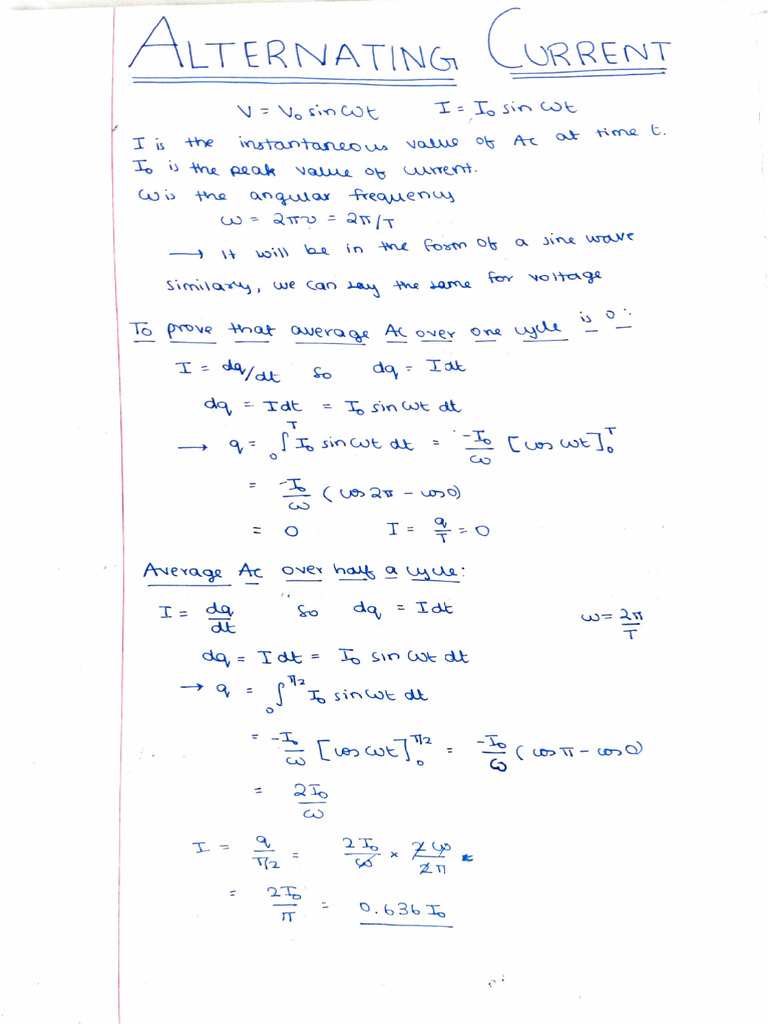 ALTERNATING CURRENT
V = V₀ sin ωt    I = I₀ sin ωt
I is the instantaneous value of AC at time t.
I₀ is the peak value of current.
ω is the angular frequency
ω = 2πν = 2π/T
→ It will be in the form of a sine wave
similarly, we can say the same for voltage
To prove that average AC over one cycle is 0:
I = dq/dt   so   dq = Idt
dq = Idt = I₀ sin ωt dt
→ q = ₀∫ᵀ I₀ sin ωt dt = -I₀/ω [cos ωt]₀ᵀ
= -I₀/ω (cos 2π - cos 0)
= 0    I = q/T = 0
Average AC over half a cycle:
I = dq/dt   so   dq = Idt    ω = 2π/T
dq = Idt = I₀ sin ωt dt
→ q = ₀∫^(T/2) I₀ sin ωt dt
= -I₀/ω [cos ωt]₀^(T/2) = -I₀/ω (cos π - cos 0)
= 2I₀/ω
I = q/(T/2) = 2I₀/ω × 2ω/2π
= 2I₀/π = 0.636 I₀